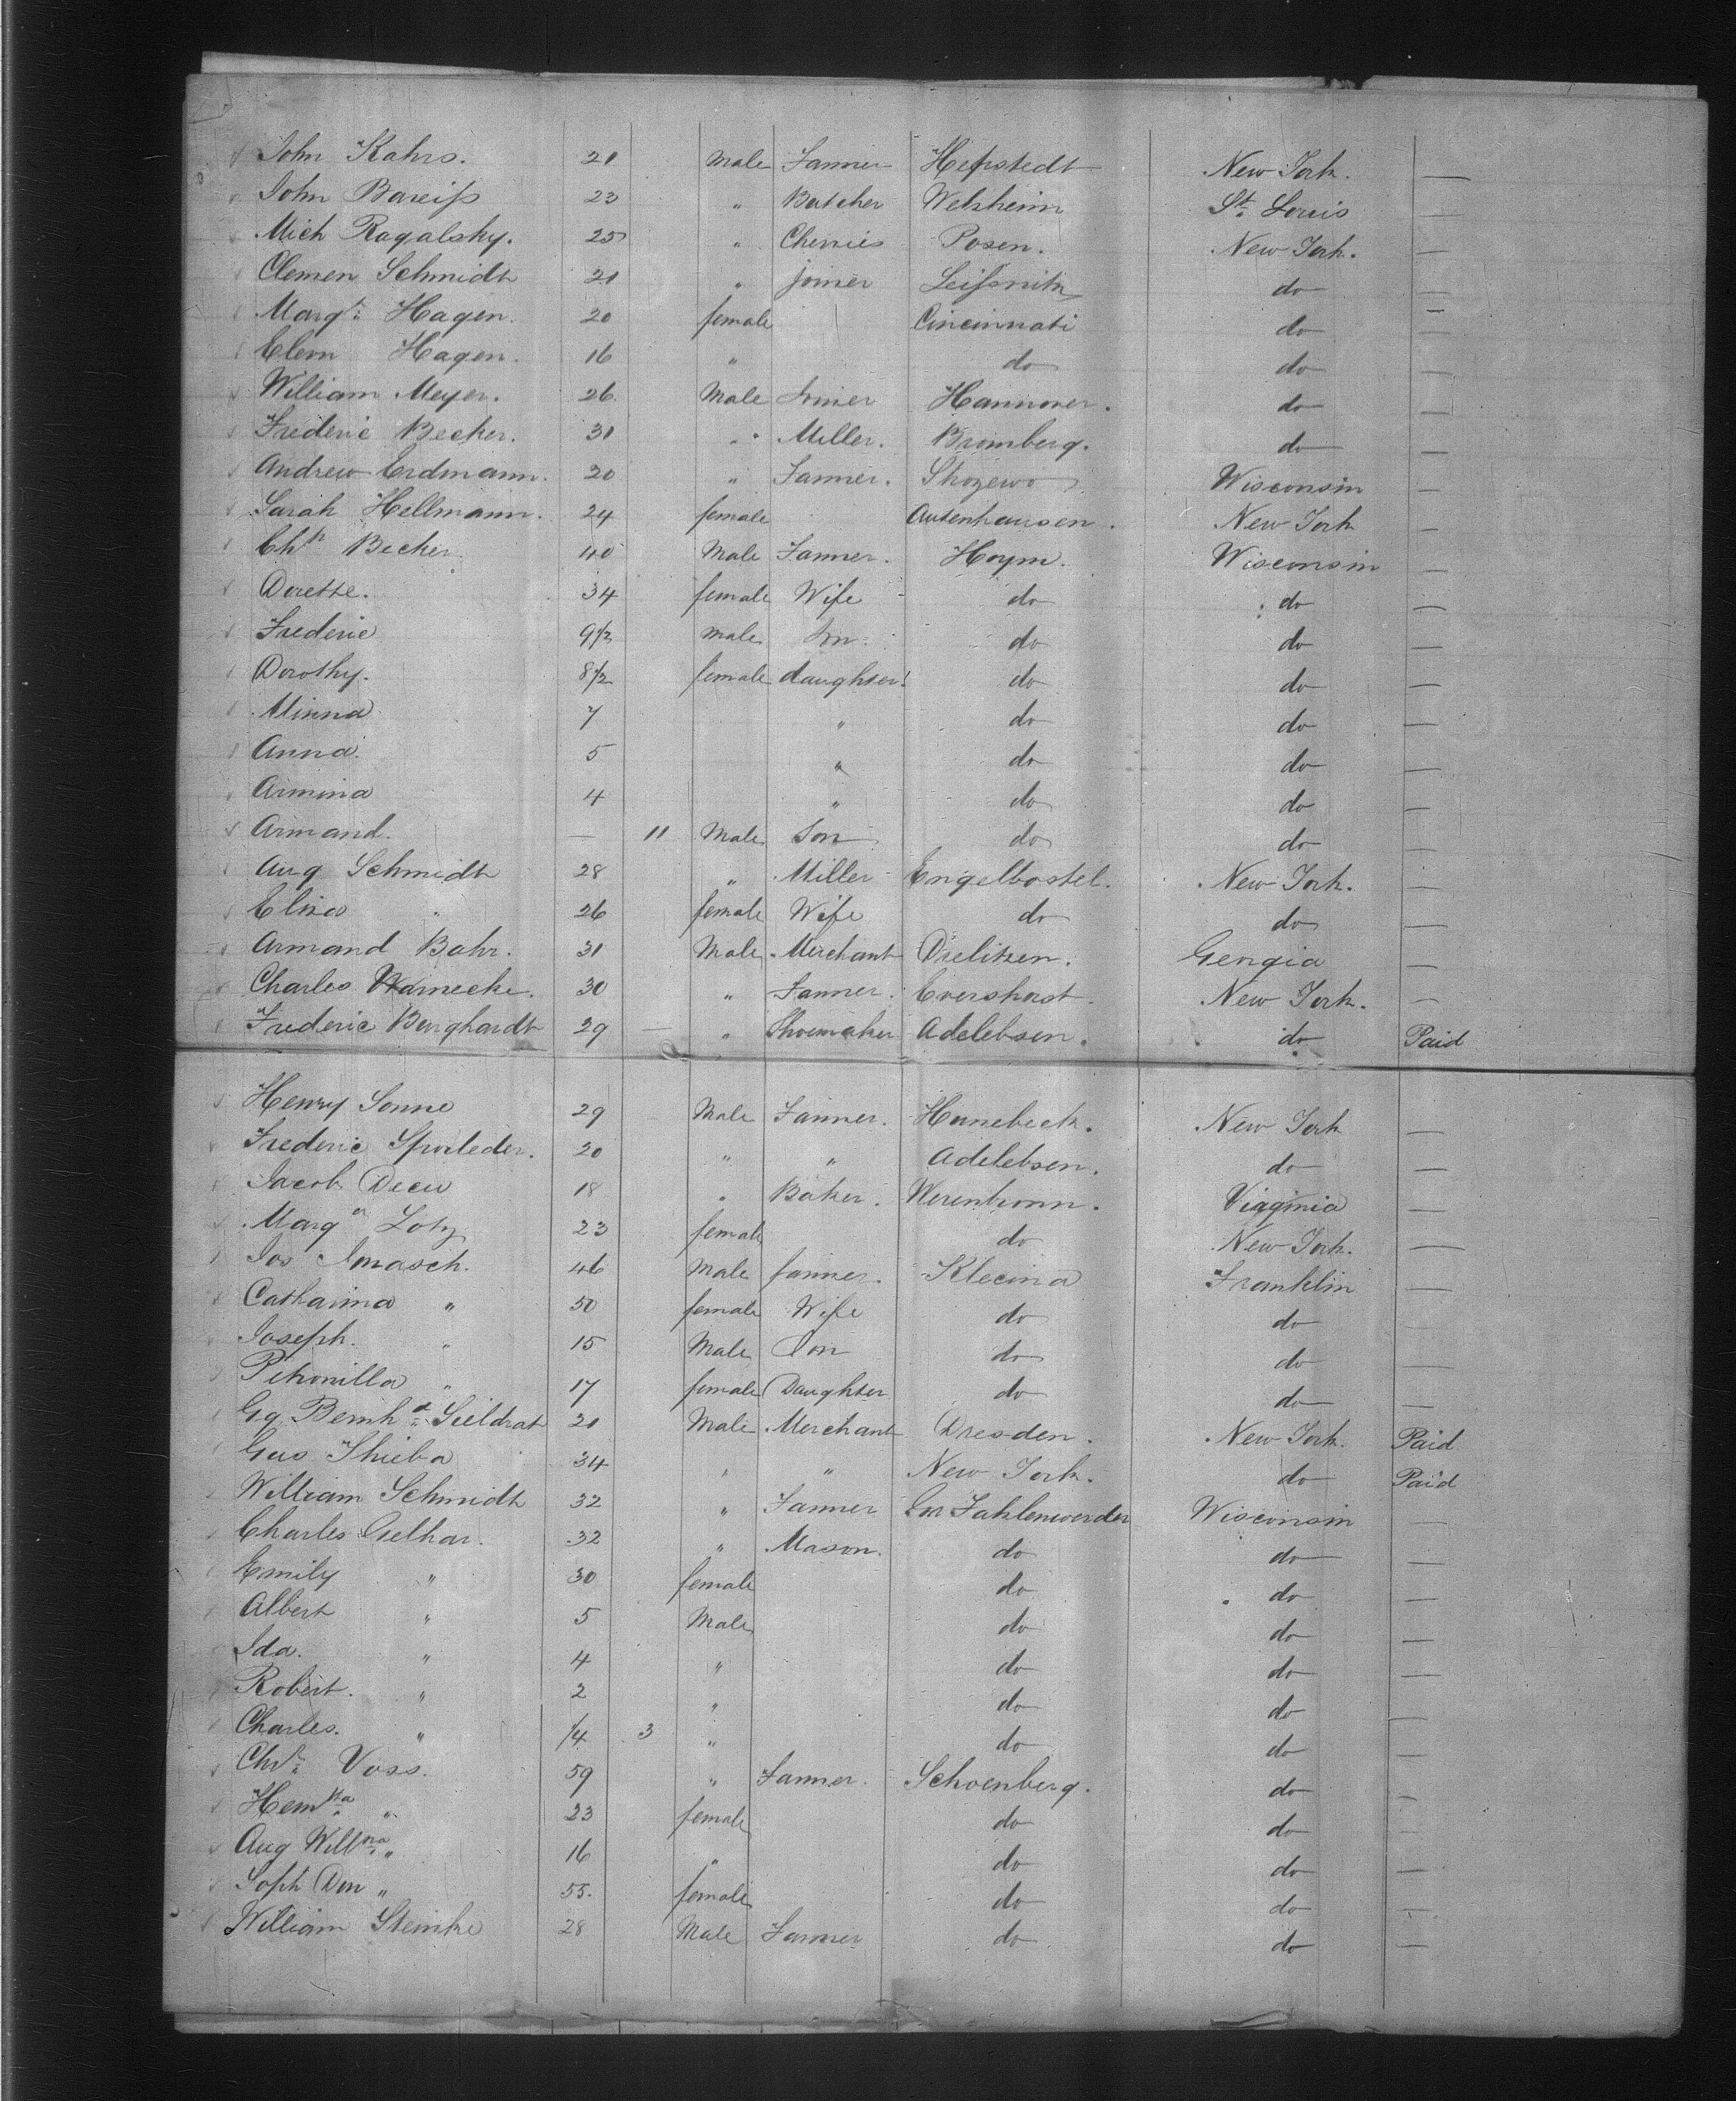 John Kahrs. 21 Male Farmer Hepstedt New York. —
John Bareiß 23 " Butcher Welzheim St. Louis —
Mich Ragalsky. 25 " Chemies Posen. New York. —
Clemen Schmidt 21 " joiner Leißnitz do —
Margt. Hagen. 20 female Cincinnati do —
Clem Hagen. 16 " do do —
William Meyer. 26. Male Joiner Hannover. do —
Frederic Becker. 31 " Miller. Bromberg. do —
Andrew Erdmann. 20 " Farmer. Skozewo Wisconsin —
Sarah Hellmann. 24 female Autenhausen. New York —
Chr Becker 40 Male Farmer. Hoym. Wisconsin —
Dorette. 34 female Wife do do —
Frederic 9 1/2 male Son. do do —
Dorothy. 8 1/2 female daughter. do do —
Minna 7 " do do —
Anna. 5 " do do —
Armina 4 " do do —
Armand. — 11 Male Son do do —
Aug Schmidt 28 " Miller Engelbostel. New York. —
Eliza " 26 female Wife do do —
Armand Bahr. 31 Male Merchant Drelitzen. Georgia —
Charles Warnecke. 30 " Farmer. Evershorst. New York. —
Frederic Burghardt 29 — " Shoemaker Adelebsen. do Paid
Henry Sonne 29 Male Farmer. Hanebeck. New York —
Frederic Sporleder. 20 " " Adelebsen. do —
Jacob Decu 18 " Baker. Werenbronn. Viaginia —
Marg Lotz 23 female do New York. —
Jos Smasch. 46 Male farmer. Klecina Franklin —
Catharina " 50 female Wife do do —
Joseph. " 15 Male Son do do —
Petronilla " 17 female Daughter do do —
Gg. Bernhd. Sieldrat 21 Male Merchant Dresden. New York. Paid
Gus Thieba 34 " " New York. do Paid
William Schmidt 32 " Farmer Gr Fahlenwerder Wisconsin —
Charles Gelhar. 32 " Mason. do do —
Emily " 30 female do do —
Albert " 5 Male do do —
Ida. " 4 " do do —
Robert. " 2 " do do —
Charles. " 1/4 3 " do do —
Chr. Voss. 59 " Farmer. Schoenberg. do —
Henrtta " 23 female do do —
Aug Willna " 16 " do do —
Soph Dor " 55. female do do —
William Steinke 28 Male Farmer do do —